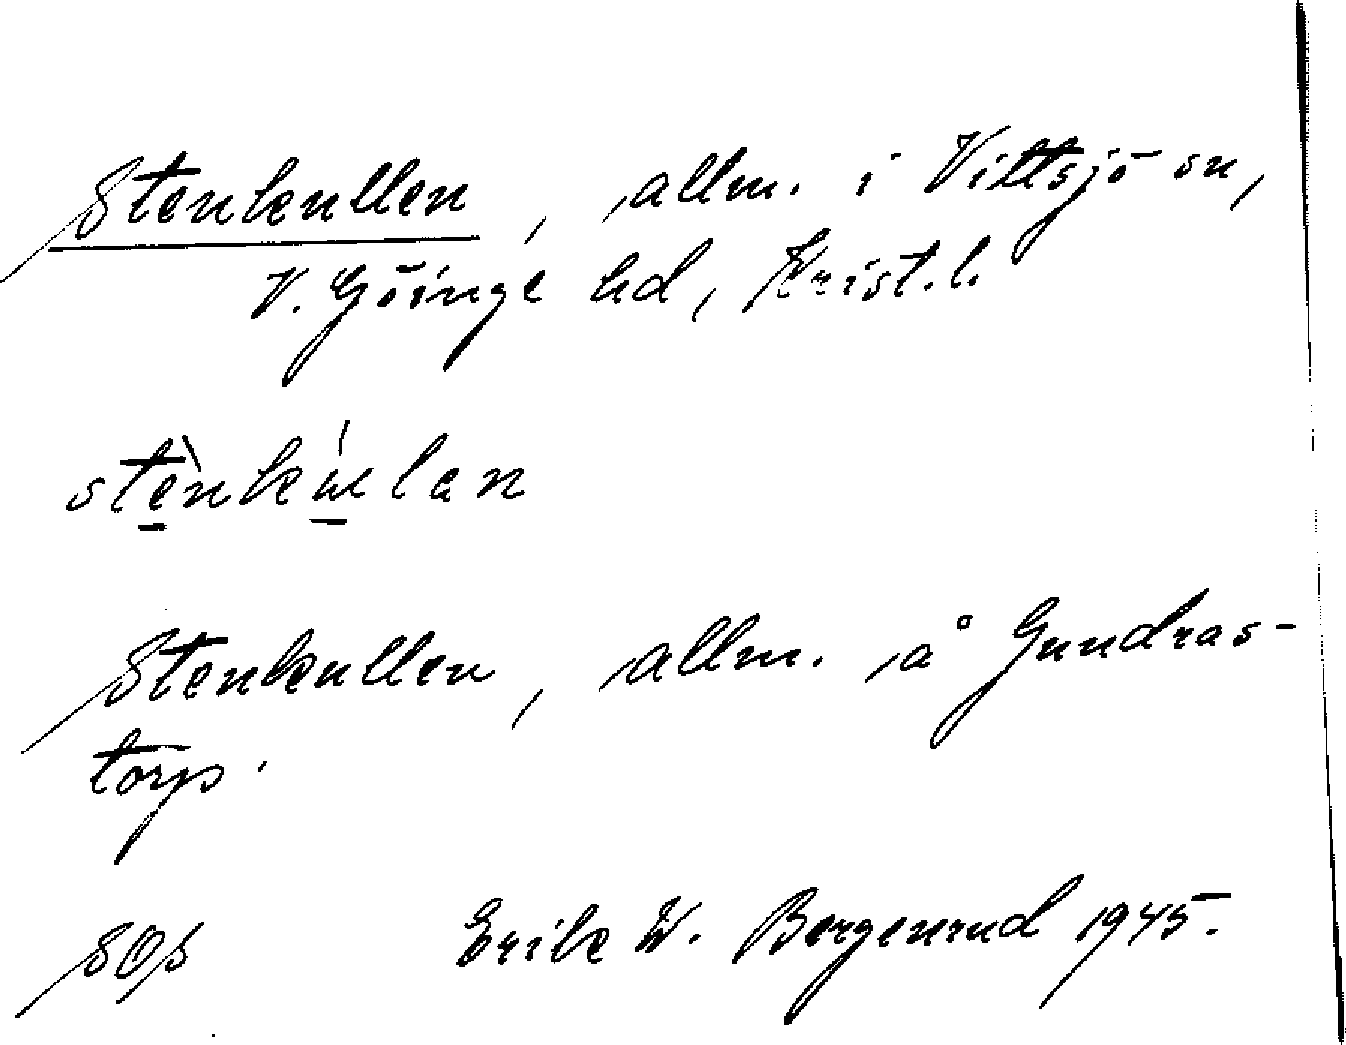 Stenkullen, allm. i Vittsjö sn,
V. Göinge hd, Krist.l.
stènkúlan
Stenkullen, allm. å Gundras-
torp.
SOS Erik W. Bergenrud 1945.